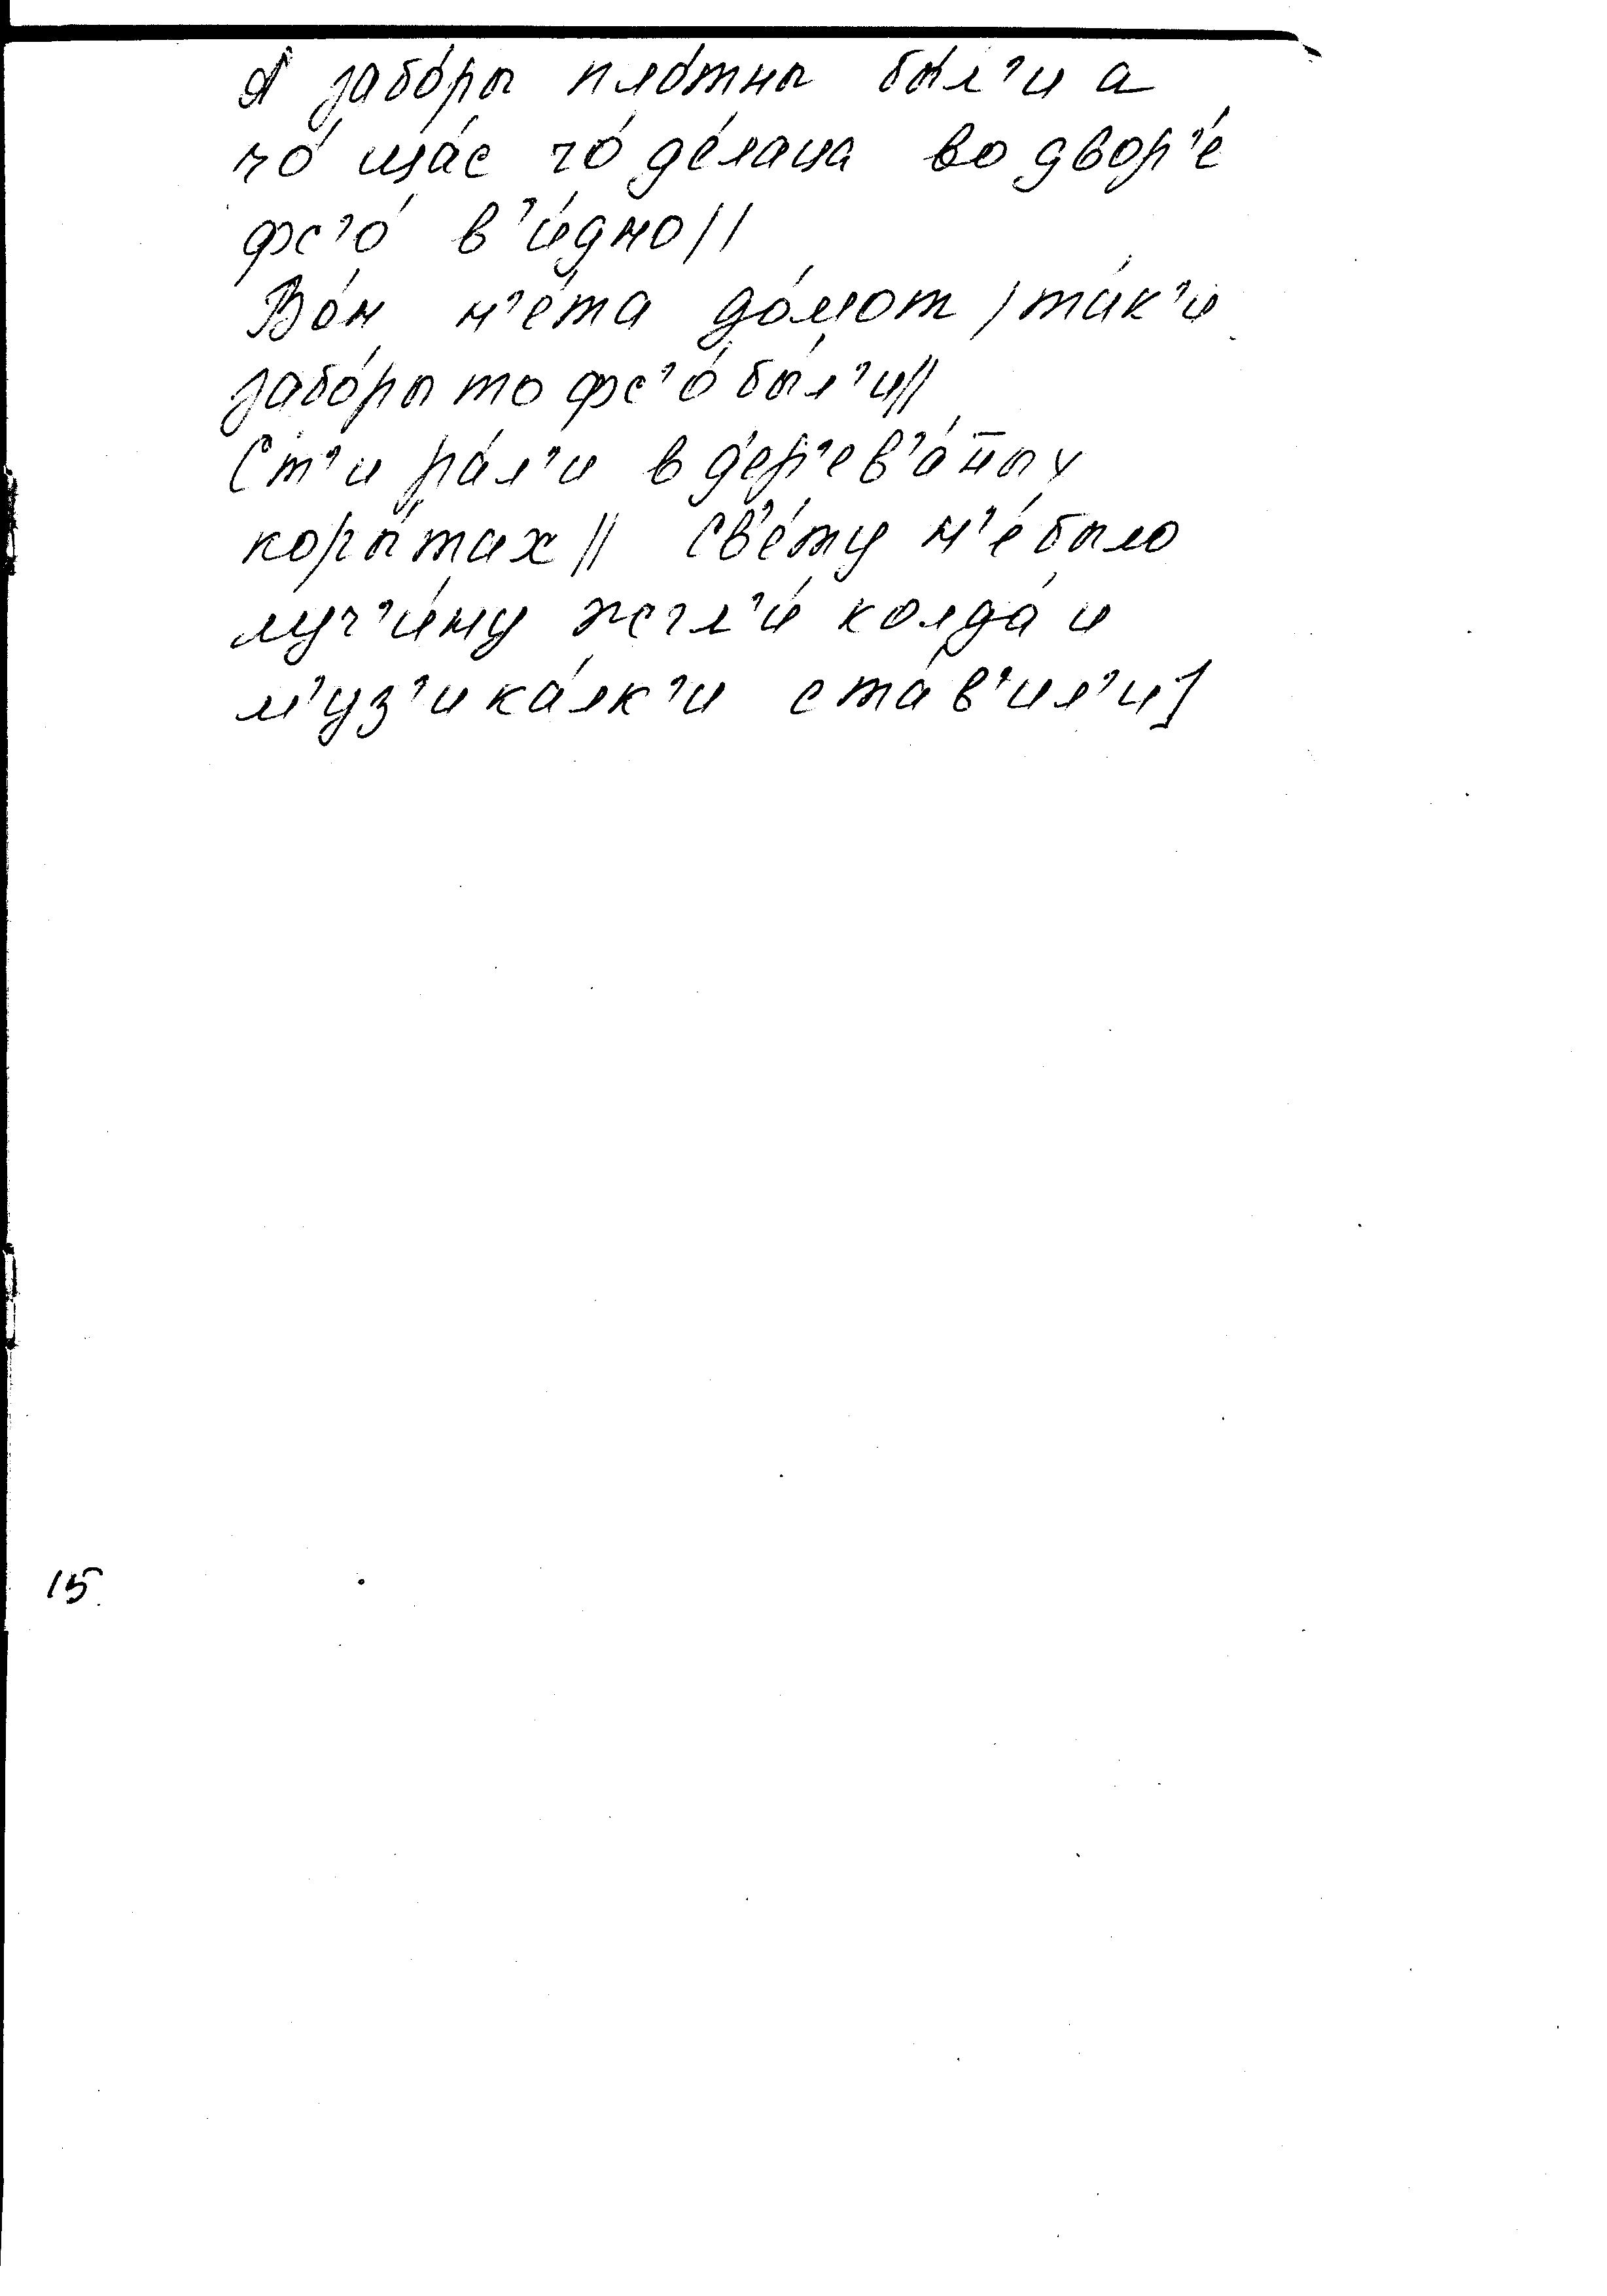 А забо́ры пло́тны бы́л'и а
чо́ ща́с чо́ де́лаца во двор'е́
фс'о́ в'и́дно//
Во́н н'е́та до́мот / та́к'и
забо́ры то фс'о́ бы́л'и//
Ст'ира́л'и в д'ер'ев'а́н̄ых
коры́тах// Св'е́ту н'е́ было
луч'и́ну жгл'и́ колда́ и
м'уз'ика́лк'и ста́в'ил'и]
15